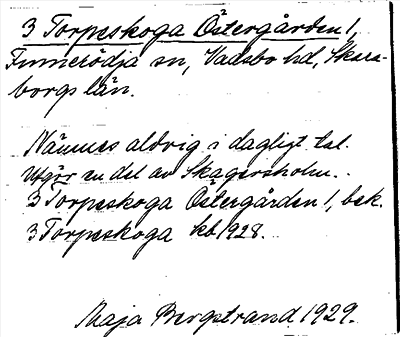 3 Torpeskoga Östergården 1,
Finnerödja sn, Vadsbo hd, Skara-
borgs län.
Nämnes aldrig i dagligt tal.
Utgör en del av Skagersholm.
3 Torpeskoga Östergården 1, bek.
3 Torpeskoga kb 1928.
Maja Bergstrand 1929.